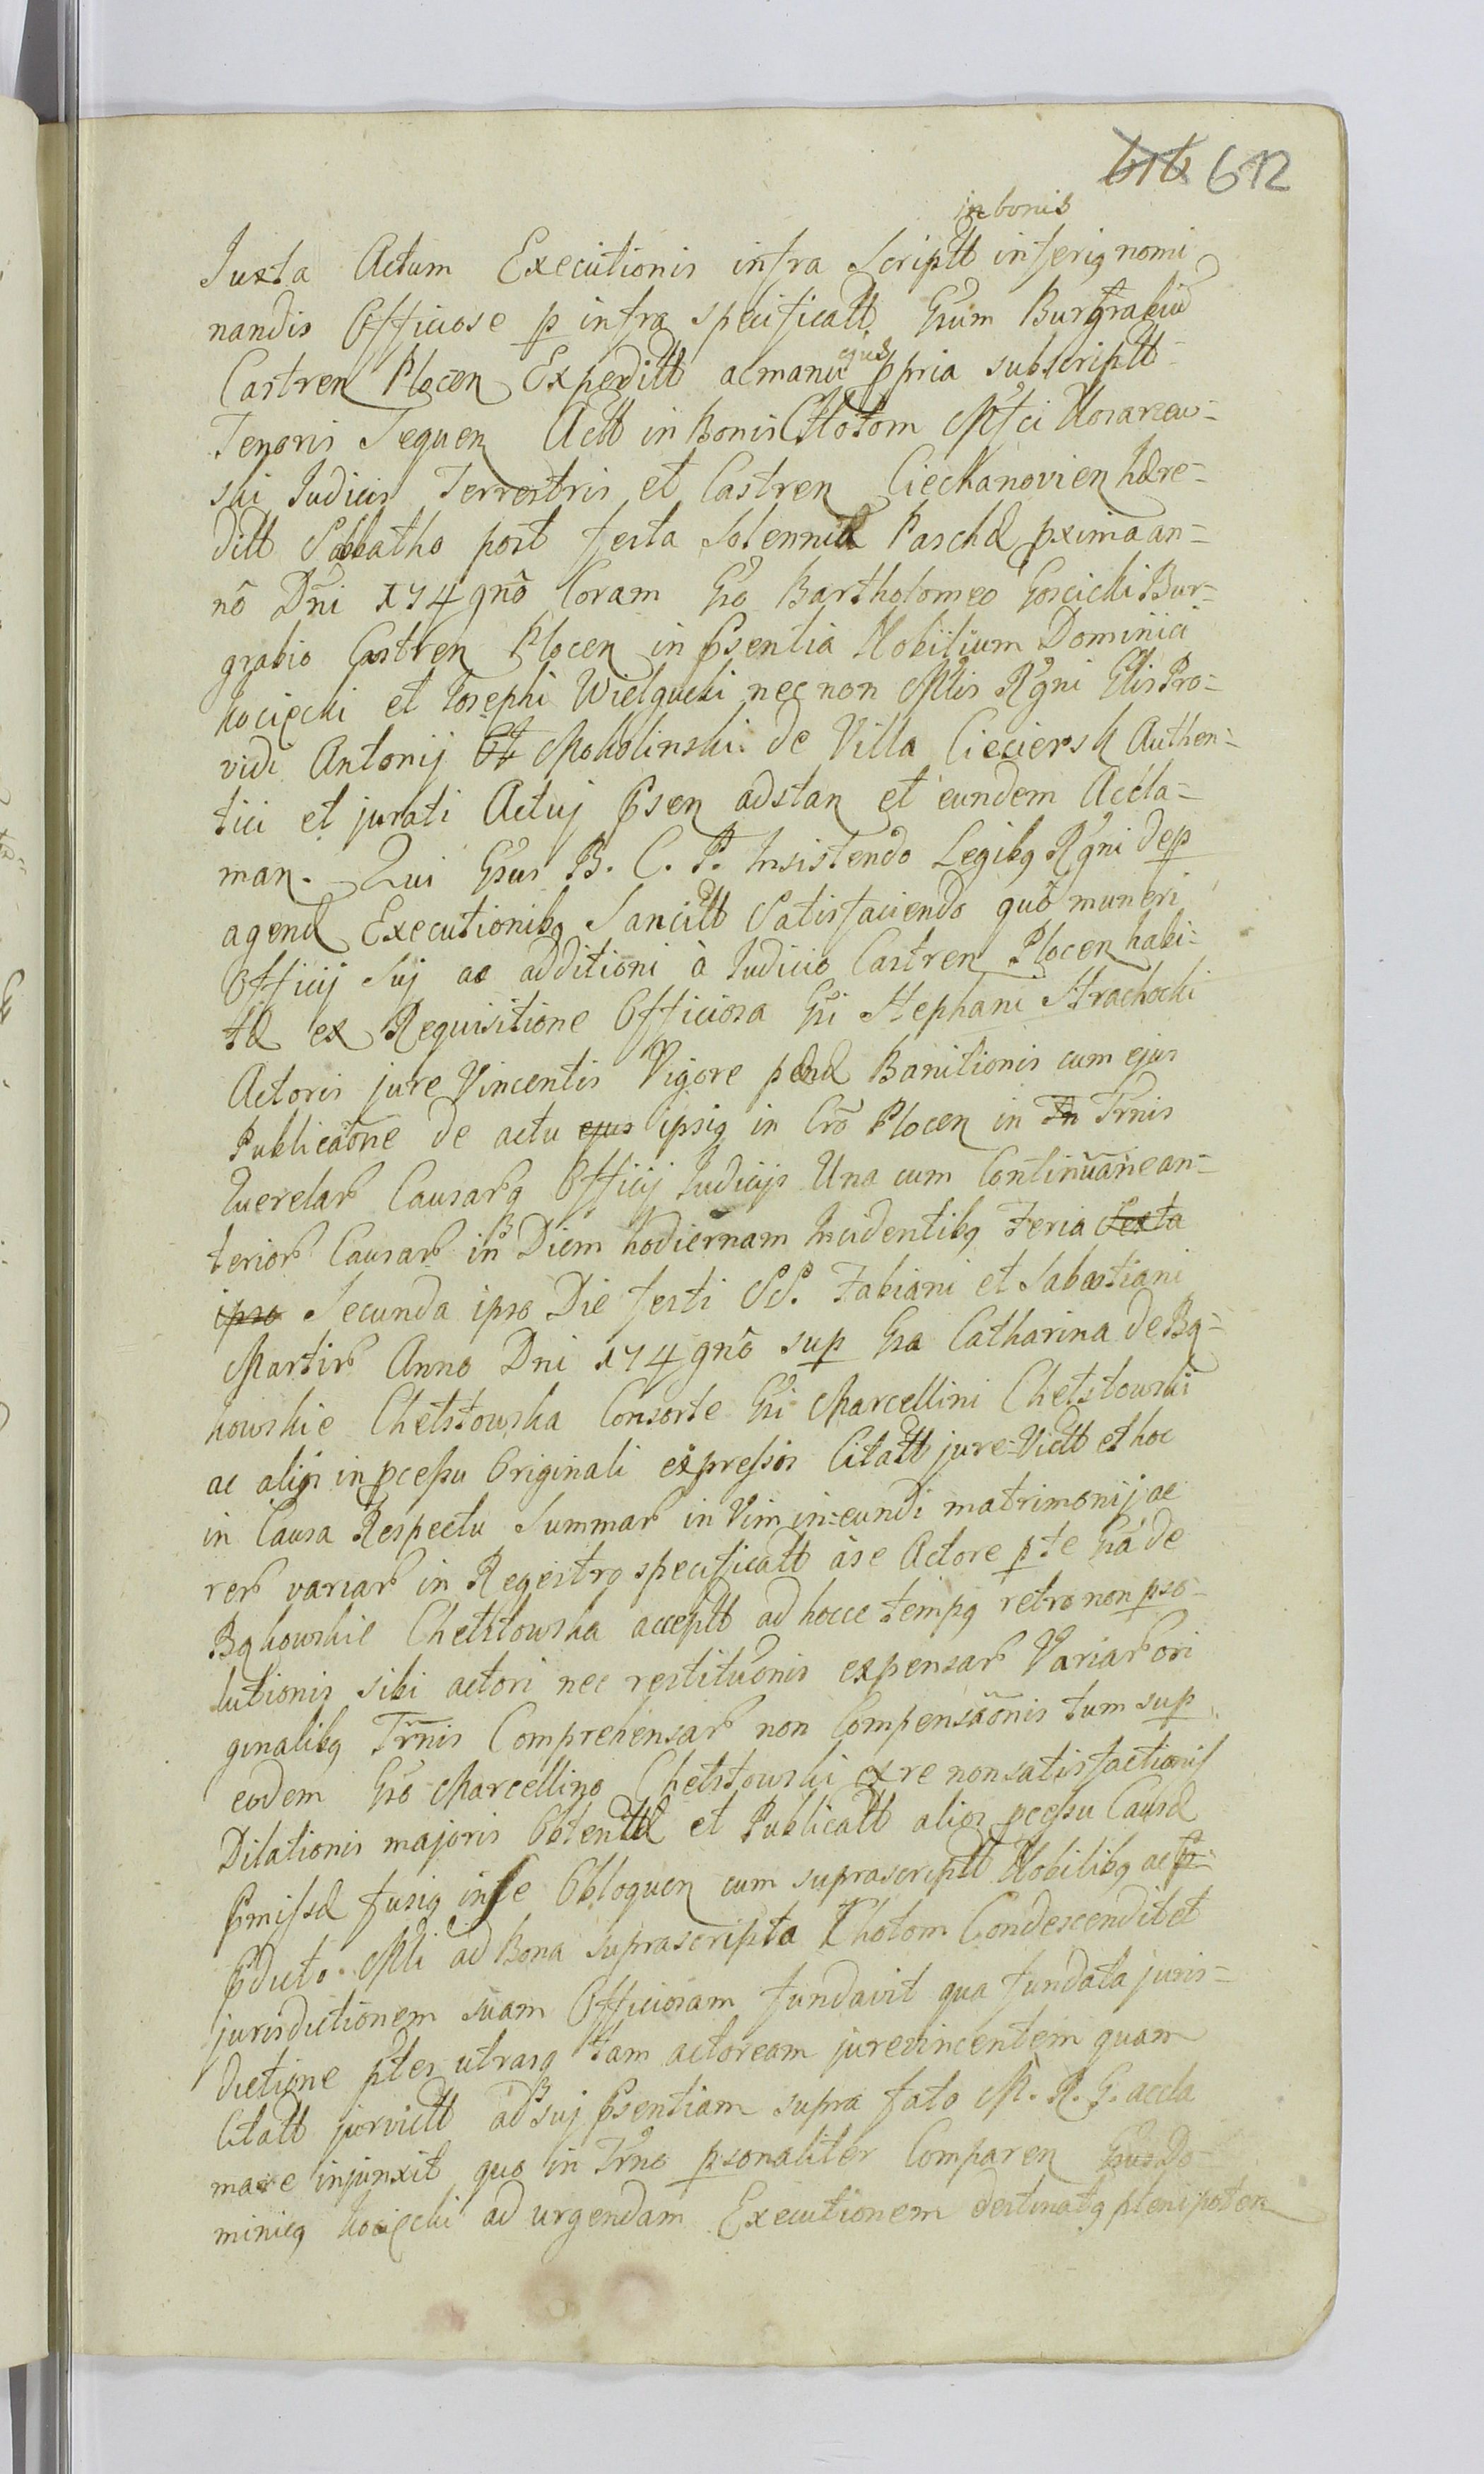 616 612
in bonis
Juxta Actum Executionis infra Scriptt inferig nomi
nandis Officiose p infra specificatt Gsum Burgrabiu
Castren Plocen Expeditt ac manu ejus ppria subscriptt
Tenoris Sequen Actt in Bonis Chotom Mfci
ski Judicis Terrestris et Castren Ciechanovien hære-
ditt Sabbatho post festa Solennia Paschæ pxima an-
nõ Dni 174gnõ Coram Gso Bartholomeo Goscicki Bur-
grabio Castren Plocen in Psentia Nobilium Dominici
Kocięcki et Josephi Wielgucki nec non Mlis Rgni Glis Pro-
vidi Antonij Mokolinski de Villa Cieciersk Authen-
tici et jurati Actuj Psen adstan et eundem Accla-
man. Qui Gsus B. C. P. Insistendo Legibq Rgni de p
agend Executionibq Sancitt Satisfaciendo quõ muneri
Officij Suj ac additioni à Judicio Castren Plocen habi-
tæ ex Requisitione Officiosa Gsi Stephani Strachocki
Actoris jure Vincentis Vigore pænæ Banitionis cum ejus
Publicatõne de actu ejus ipsiq in Crõ Plocen in Tn Trnis
Querelar Causarq Officij Judicijs Una cum Continuãne an-
terior Causar in Diem hodiernam Incidentibq Feria Sexta
ipso Secunda ipso Die festi SS. Fabiani et Sabastiani
Martir Anno Dni 174gnõ sup Gsa Catharina de Bq-
kowskie Chełstowska Consorte Gsi Marcellini Chełstowski
ac alijs in pcessu Originali expressis Citatt jure Victt et hoc
in Causa Respectu Summar in Vim in-eundi matrimonij ac
rer variar in Regestro specificatt à se Actore p te Gsa de
Bqkowskie Chełstowska acceptt ad hocce tempq retro non pso-
lutionis sibi actori nec restituõnis expensar Variar ori
ginalibq Trnis Comprehensar non Compensaõnis tum sup
eodem Gsõ Marcellino Chełstowski ex re nonsatisfactionis
Dilationis majoris Obtentæ et Publicatt alios pcessu Causæ
Pmissæ fusiq in se Obloquen cum suprascriptt Nobilibq ac P
Pdicto Mli ad Bona suprascripta Chotom Condescendit et
jurisdictionem suam Officiosam fundavit qua fundata juris-
dictione ptes utrasq tam actoream jurevincentem quam
Citatt jurvictt ad suj Psentiam supra fato M. R. G. accla
mare injunxit quo in Trno psonaliter Comparen Gsus Do-
minicq Kocięcki ad urgendam Executionem destinatq plenipoten